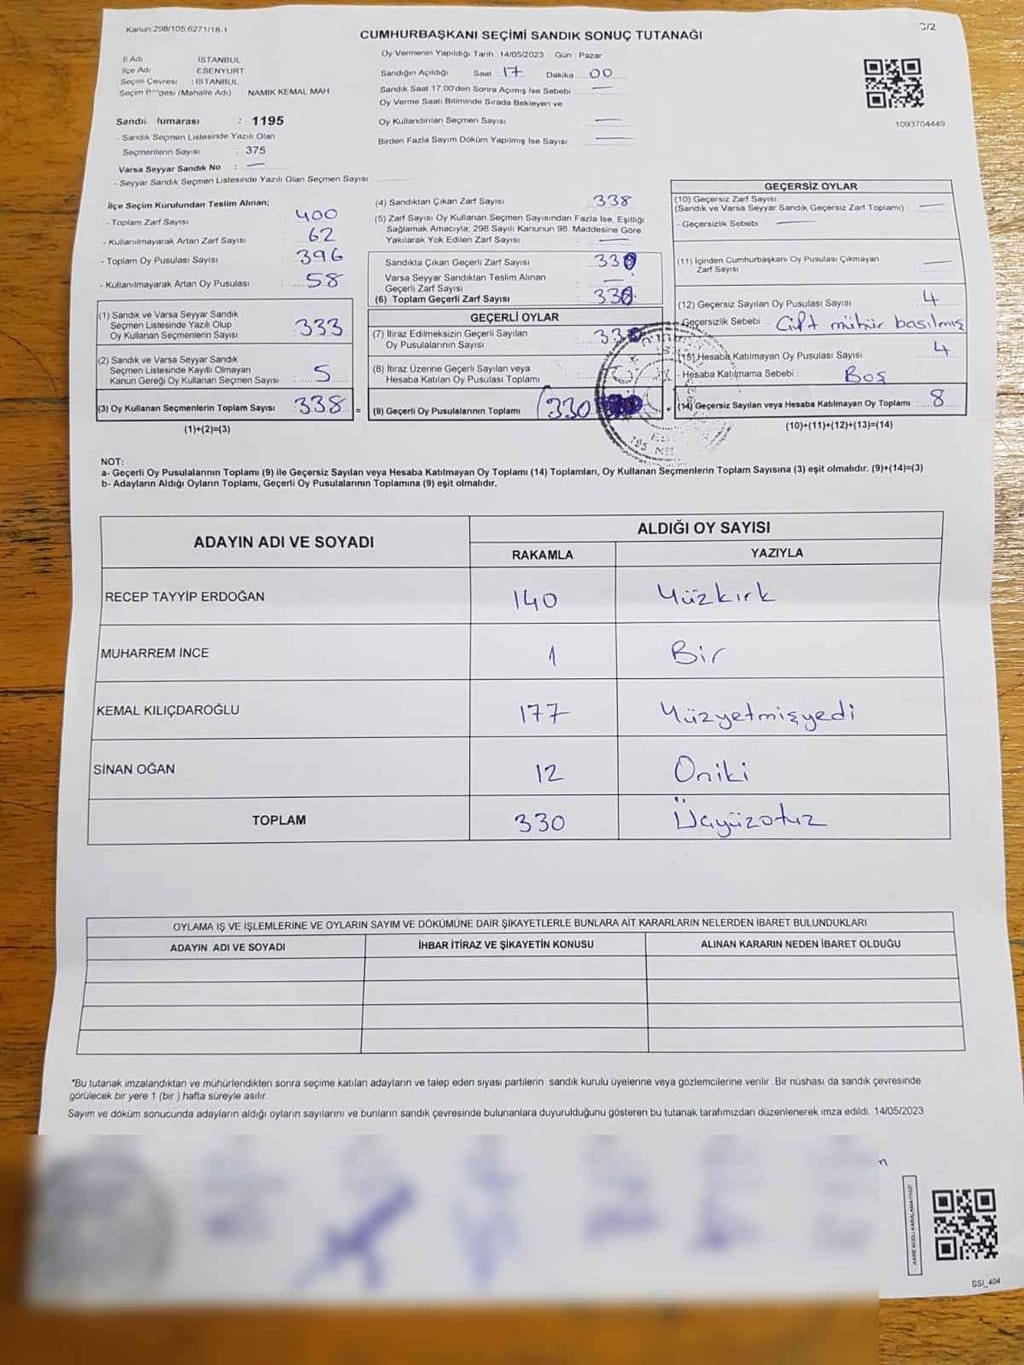 Kanun:298/105,6271/18-1
CUMHURBAŞKANI SEÇİMİ SANDIK SONUÇ TUTANAĞI
İl Adı İSTANBUL
İlçe Adı ESENYURT
Seçim Çevresi : İSTANBUL
Seçim Bölgesi (Mahalle Adı) NAMIK KEMAL MAH
Sandık Numarası : 1195
- Sandık Seçmen Listesinde Yazılı Olan
Seçmenlerin Sayısı : 375
Varsa Seyyar Sandık No : —
- Seyyar Sandık Seçmen Listesinde Yazılı Olan Seçmen Sayısı:
Oy Vermenin Yapıldığı Tarih :14/05/2023 Gün : Pazar
Sandığın Açıldığı Saat 17 Dakika 00
Sandık Saat 17.00'den Sonra Açılmış İse Sebebi —
Oy Verme Saati Bitiminde Sırada Bekleyen ve
Oy Kullandırılan Seçmen Sayısı —
Birden Fazla Sayım Döküm Yapılmış İse Sayısı —
1093704449
İlçe Seçim Kurulundan Teslim Alınan;
- Toplam Zarf Sayısı : 400
- Kullanılmayarak Artan Zarf Sayısı : 62
- Toplam Oy Pusulası Sayısı : 396
- Kullanılmayarak Artan Oy Pusulası : 58
(1) Sandık ve Varsa Seyyar Sandık
Seçmen Listesinde Yazılı Olup
Oy Kullanan Seçmenlerin Sayısı : 333
(2) Sandık ve Varsa Seyyar Sandık
Seçmen Listesinde Kayıtlı Olmayan
Kanun Gereği Oy Kullanan Seçmen Sayısı : 5
(3) Oy Kullanan Seçmenlerin Toplam Sayısı : 338 =
(1)+(2)=(3)
(4) Sandıktan Çıkan Zarf Sayısı : 338
(5) Zarf Sayısı Oy Kullanan Seçmen Sayısından Fazla İse, Eşitliği
Sağlamak Amacıyla; 298 Sayılı Kanunun 98. Maddesine Göre
Yakılarak Yok Edilen Zarf Sayısı : —
Sandıkta Çıkan Geçerli Zarf Sayısı : 330
Varsa Seyyar Sandıktan Teslim Alınan
Geçerli Zarf Sayısı : —
(6) Toplam Geçerli Zarf Sayısı : 330
GEÇERLİ OYLAR
(7) İtiraz Edilmeksizin Geçerli Sayılan
Oy Pusulalarının Sayısı : 330
(8) İtiraz Üzerine Geçerli Sayılan veya
Hesaba Katılan Oy Pusulası Toplamı
(9) Geçerli Oy Pusulalarının Toplamı (330
GEÇERSİZ OYLAR
(10) Geçersiz Zarf Sayısı
(Sandık ve Varsa Seyyar Sandık Geçersiz Zarf Toplamı) : —
- Geçersizlik Sebebi : —
(11) İçinden Cumhurbaşkanı Oy Pusulası Çıkmayan
Zarf Sayısı : —
(12) Geçersiz Sayılan Oy Pusulası Sayısı : 4
- Geçersizlik Sebebi : Çift mühür basılmış
(13) Hesaba Katılmayan Oy Pusulası Sayısı : 4
- Hesaba Katılmama Sebebi : Boş
(14) Geçersiz Sayılan veya Hesaba Katılmayan Oy Toplamı : 8
(10)+(11)+(12)+(13)=(14)
NOT:
a- Geçerli Oy Pusulalarının Toplamı (9) ile Geçersiz Sayılan veya Hesaba Katılmayan Oy Toplamı (14) Toplamları, Oy Kullanan Seçmenlerin Toplam Sayısına (3) eşit olmalıdır. (9)+(14)=(3)
b- Adayların Aldığı Oyların Toplamı, Geçerli Oy Pusulalarının Toplamına (9) eşit olmalıdır.
ADAYIN ADI VE SOYADI
ALDIĞI OY SAYISI
RAKAMLA YAZIYLA
RECEP TAYYİP ERDOĞAN 140 Yüzkırk
MUHARREM İNCE 1 Bir
KEMAL KILIÇDAROĞLU 177 Yüzyetmişyedi
SİNAN OĞAN 12 Oniki
TOPLAM 330 Üçyüzotuz
OYLAMA İŞ VE İŞLEMLERİNE VE OYLARIN SAYIM VE DÖKÜMÜNE DAİR ŞİKAYETLERLE BUNLARA AİT KARARLARIN NELERDEN İBARET BULUNDUKLARI
ADAYIN ADI VE SOYADI İHBAR İTİRAZ VE ŞİKAYETİN KONUSU ALINAN KARARIN NEDEN İBARET OLDUĞU
*Bu tutanak imzalandıktan ve mühürlendikten sonra seçime katılan adayların ve talep eden siyasi partilerin sandık kurulu üyelerine veya gözlemcilerine verilir. Bir nüshası da sandık çevresinde
görülecek bir yere 1 (bir) hafta süreyle asılır.
Sayım ve döküm sonucunda adayların aldığı oyların sayılarını ve bunların sandık çevresinde bulunanlara duyurulduğunu gösteren bu tutanak tarafımızdan düzenlenerek imza edildi. 14/05/2023
SSİ_404